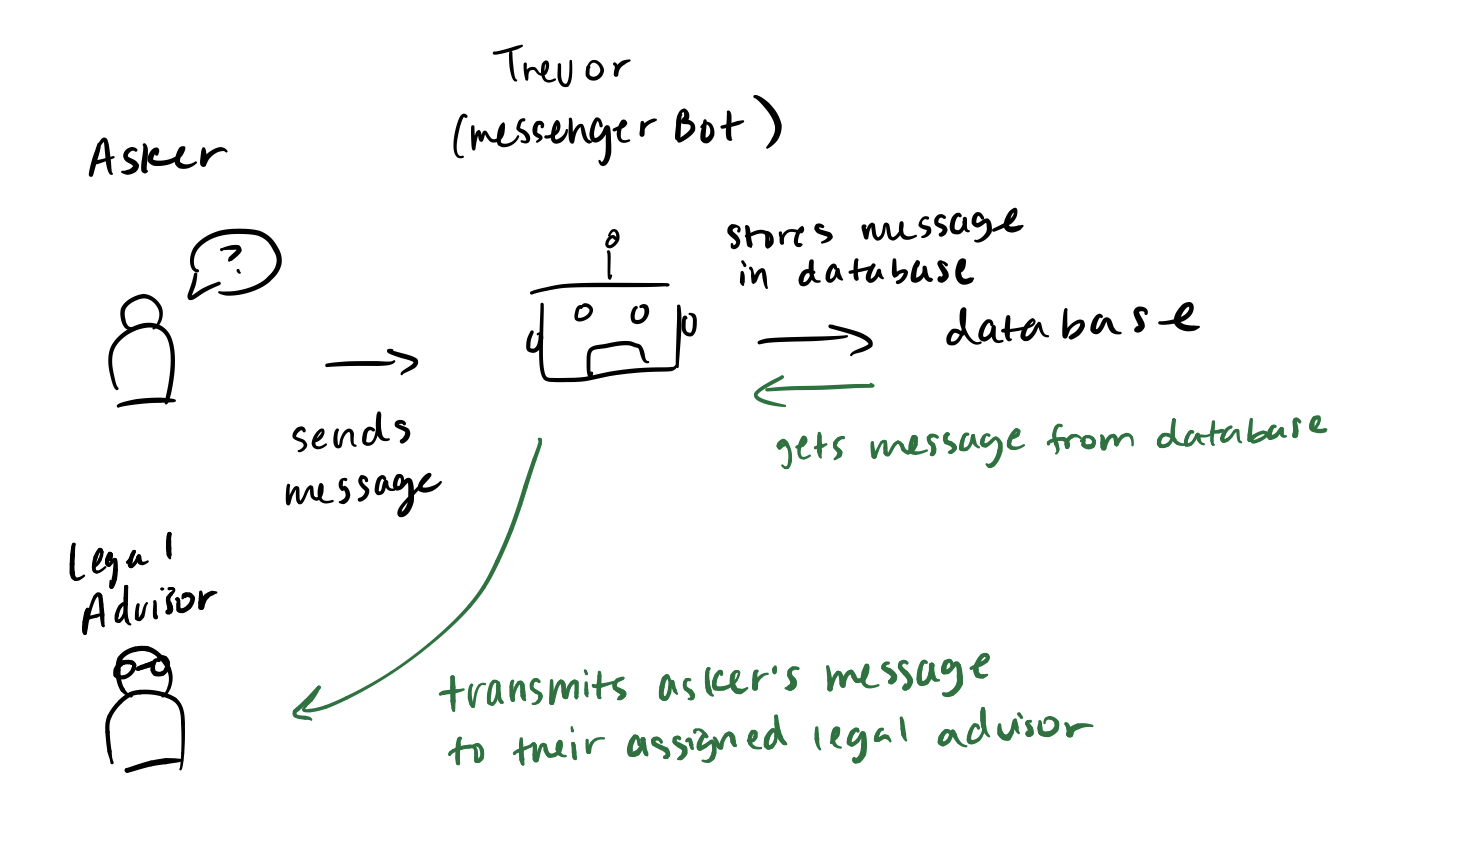 Trevor
(messenger Bot)
Asker
?
stores message
in database
database
sends
message
gets message from database
Legal
Advisor
transmits asker's message
to their assigned legal advisor